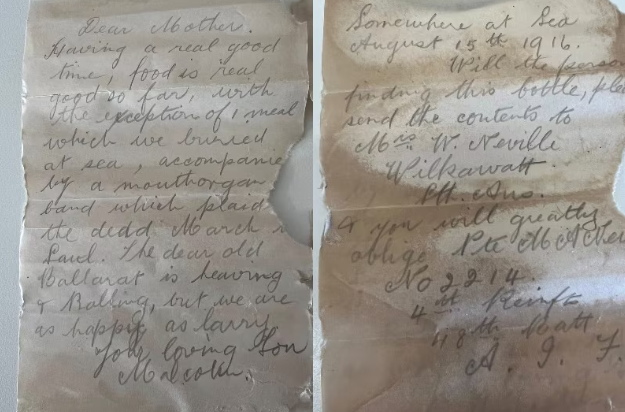 Dear Mother.
Having a real good
time, food is real
good so far, with
the exception of 1 meal
which we burried
at sea, accompanie
by a mouthorgan
band which plaid
the dedd March
Saul. The dear old
Ballarat is heaving
& Rolling, but we are
as happy as larry
Your loving Son
Malcolm.
Somewhere at Sea
August 15th 1916.
Will the person
finding this bottle,
send the contents to
Mrs W. Neville
Wilkawatt.
Sth. Aus.
& you will greatly
oblige Pte M A Nev
No 2214
4th Reinfts
48th Batt
A. I. F.